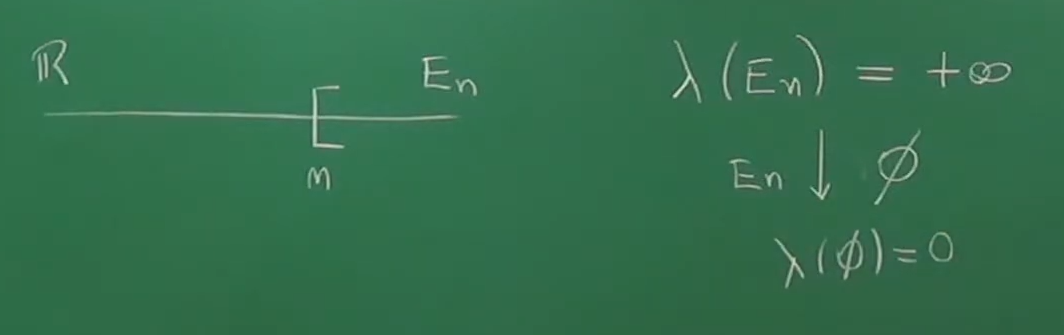 ℝ
[
n
Eₙ
λ(Eₙ) = +∞
Eₙ ↓ ∅
λ(∅) = 0